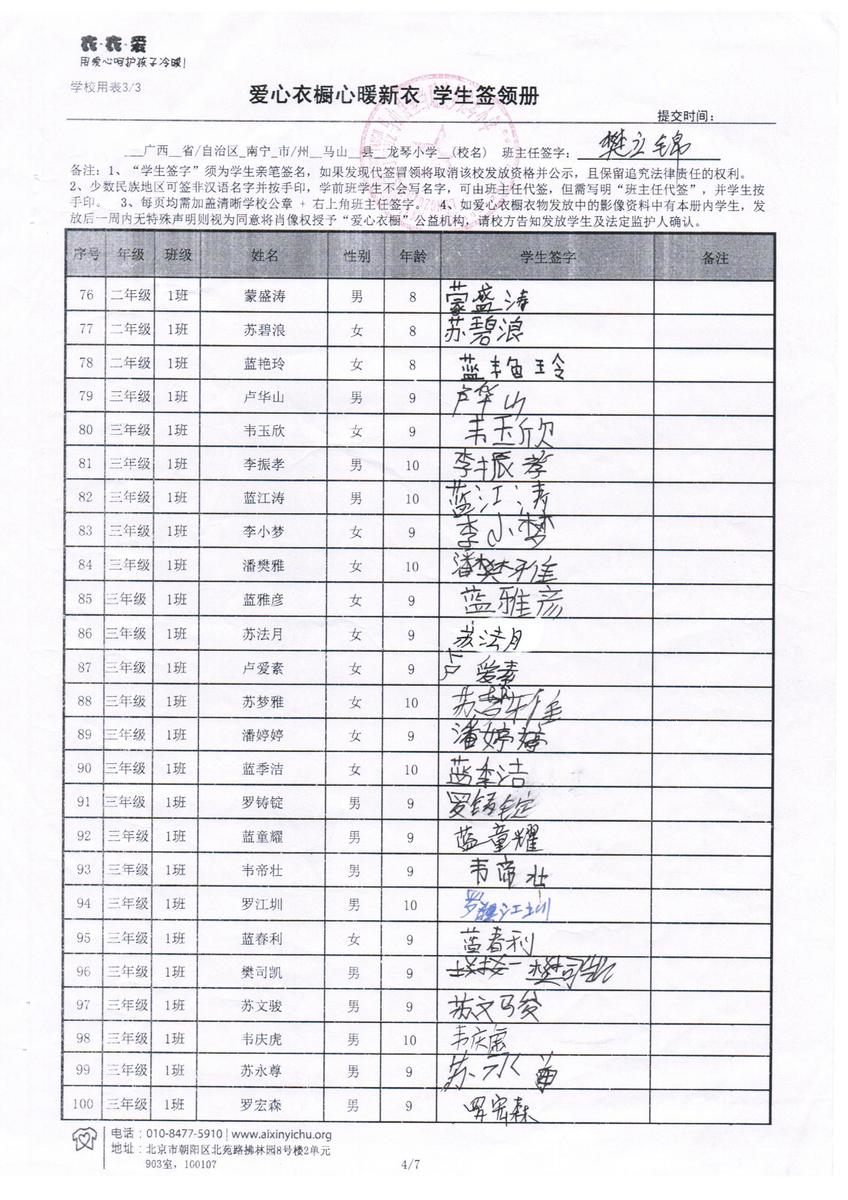 衣·衣·爱
用爱心呵护孩子冷暖!
学校用表3/3
爱心衣橱心暖新衣 学生签领册
提交时间:
广西__省/自治区_南宁_市/州__马山__县__龙琴小学__(校名) 班主任签字: 樊立锦
备注:1、“学生签字”须为学生亲笔签名,如果发现代签冒领将取消该校发放资格并公示,且保留追究法律责任的权利。
2、少数民族地区可签非汉语名字并按手印,学前班学生不会写名字,可由班主任代签,但需写明“班主任代签”,并学生按
手印。 3、每页均需加盖清晰学校公章 + 右上角班主任签字。 4、如爱心衣橱衣物发放中的影像资料中有本册内学生,发
放后一周内无特殊声明则视为同意将肖像权授予“爱心衣橱”公益机构,请校方告知发放学生及法定监护人确认。
序号 年级 班级 姓名 性别 年龄 学生签字 备注
76 二年级 1班 蒙盛涛 男 8 蒙盛涛
77 二年级 1班 苏碧浪 女 8 苏碧浪
78 二年级 1班 蓝艳玲 女 8 蓝艳玲
79 三年级 1班 卢华山 男 9 卢华山
80 三年级 1班 韦玉欣 女 9 韦玉欣
81 三年级 1班 李振孝 男 10 李振孝
82 三年级 1班 蓝江涛 男 10 蓝江涛
83 三年级 1班 李小梦 女 9 李小梦
84 三年级 1班 潘樊雅 女 10 潘樊雅
85 三年级 1班 蓝雅彦 女 9 蓝雅彦
86 三年级 1班 苏法月 女 9 苏法月
87 三年级 1班 卢爱素 女 9 卢爱素
88 三年级 1班 苏梦雅 女 10 苏梦雅
89 三年级 1班 潘婷婷 女 9 潘婷婷
90 三年级 1班 蓝季洁 女 10 蓝季洁
91 三年级 1班 罗铸锭 男 9 罗铸锭
92 三年级 1班 蓝童耀 男 9 蓝童耀
93 三年级 1班 韦帝壮 男 9 韦帝壮
94 三年级 1班 罗江圳 男 10 罗江圳
95 三年级 1班 蓝春利 女 9 蓝春利
96 三年级 1班 樊司凯 男 9 樊司凯
97 三年级 1班 苏文骏 男 9 苏文骏
98 三年级 1班 韦庆虎 男 10 韦庆虎
99 三年级 1班 苏永尊 男 9 苏永尊
100 三年级 1班 罗宏森 男 9 罗宏森
电话:010-8477-5910 | www.aixinyichu.org
地址:北京市朝阳区北苑路拂林园8号楼2单元
903室,100107
4/7